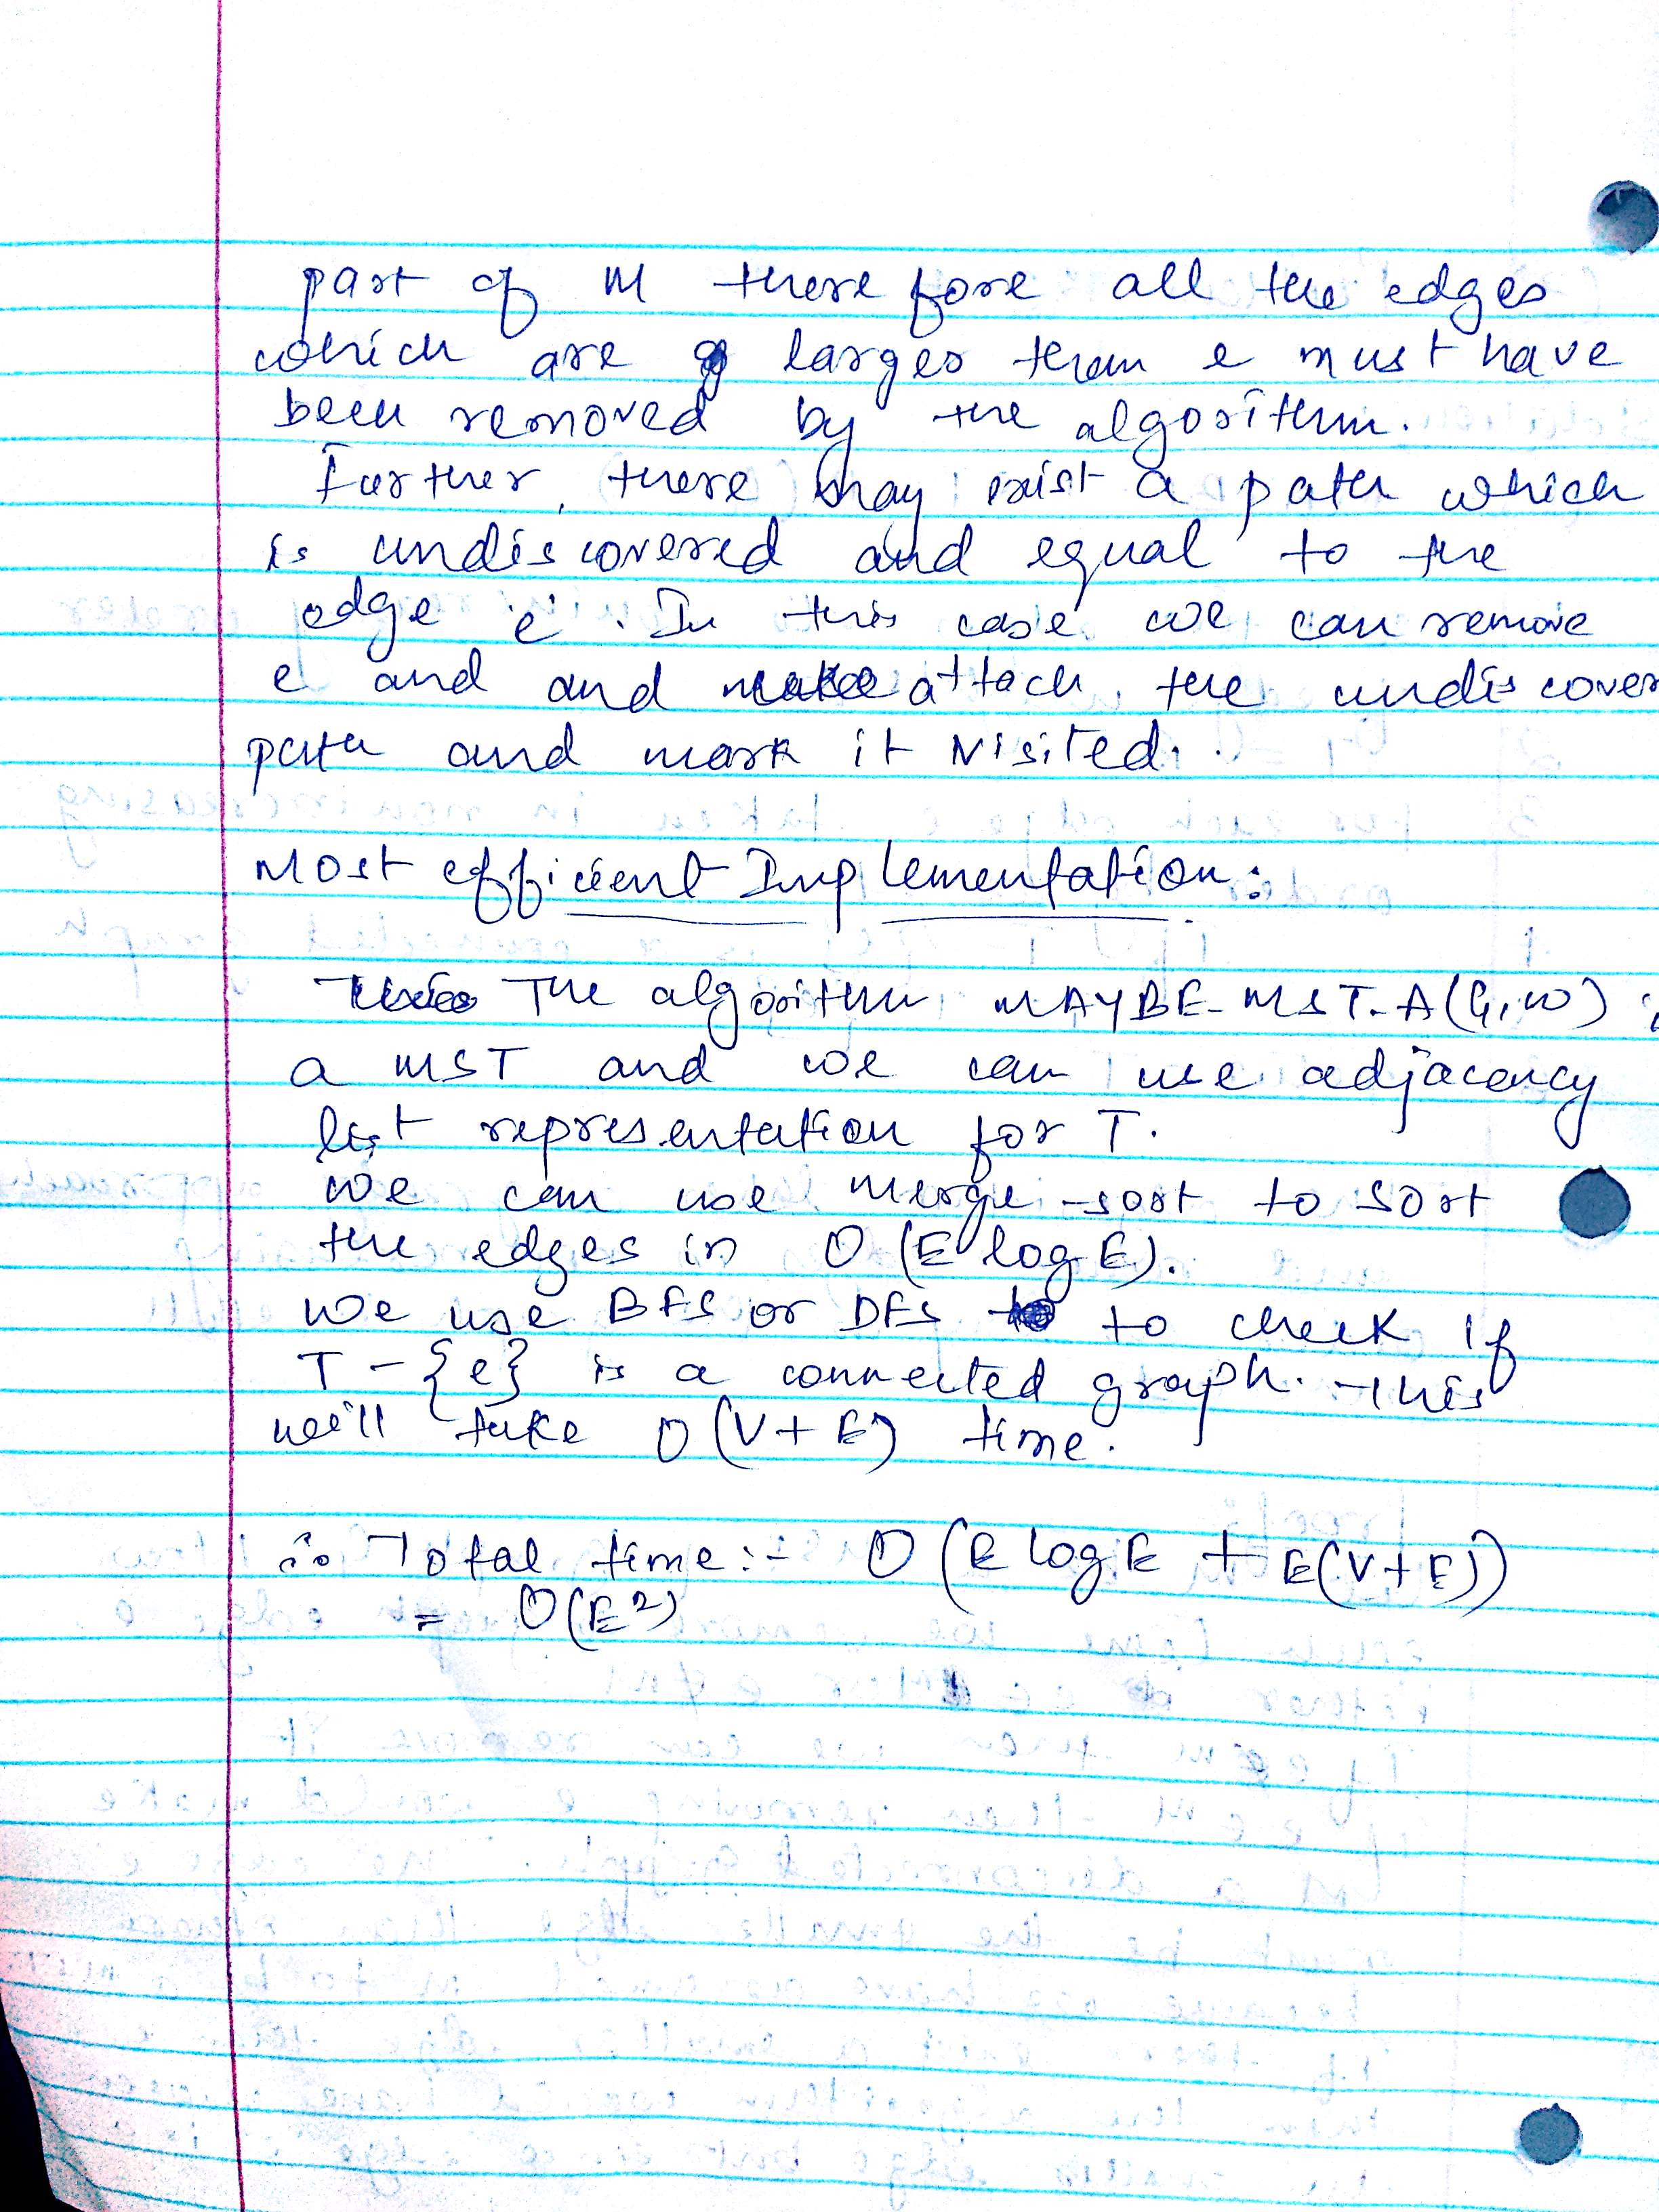 part of M therefore all the edges
which are larger than e must have
been removed by the algorithm.
Further, there may exist a path which
is undiscovered and equal to the
edge 'e'. In this case we can remove
e and and attach the undiscover
path and mark it visited.
Most efficient Implementation:
The algorithm MAYBE-MST-A(G,w)
a MST and we can use adjacency
list representation for T.
We can use merge-sort to sort
the edges in O(E log E).
We use BFS or DFS to check if
T - {e} is a connected graph. This
will take O(V+E) time.
∴ Total time:- O(E log E + E(V+E))
= O(E²)